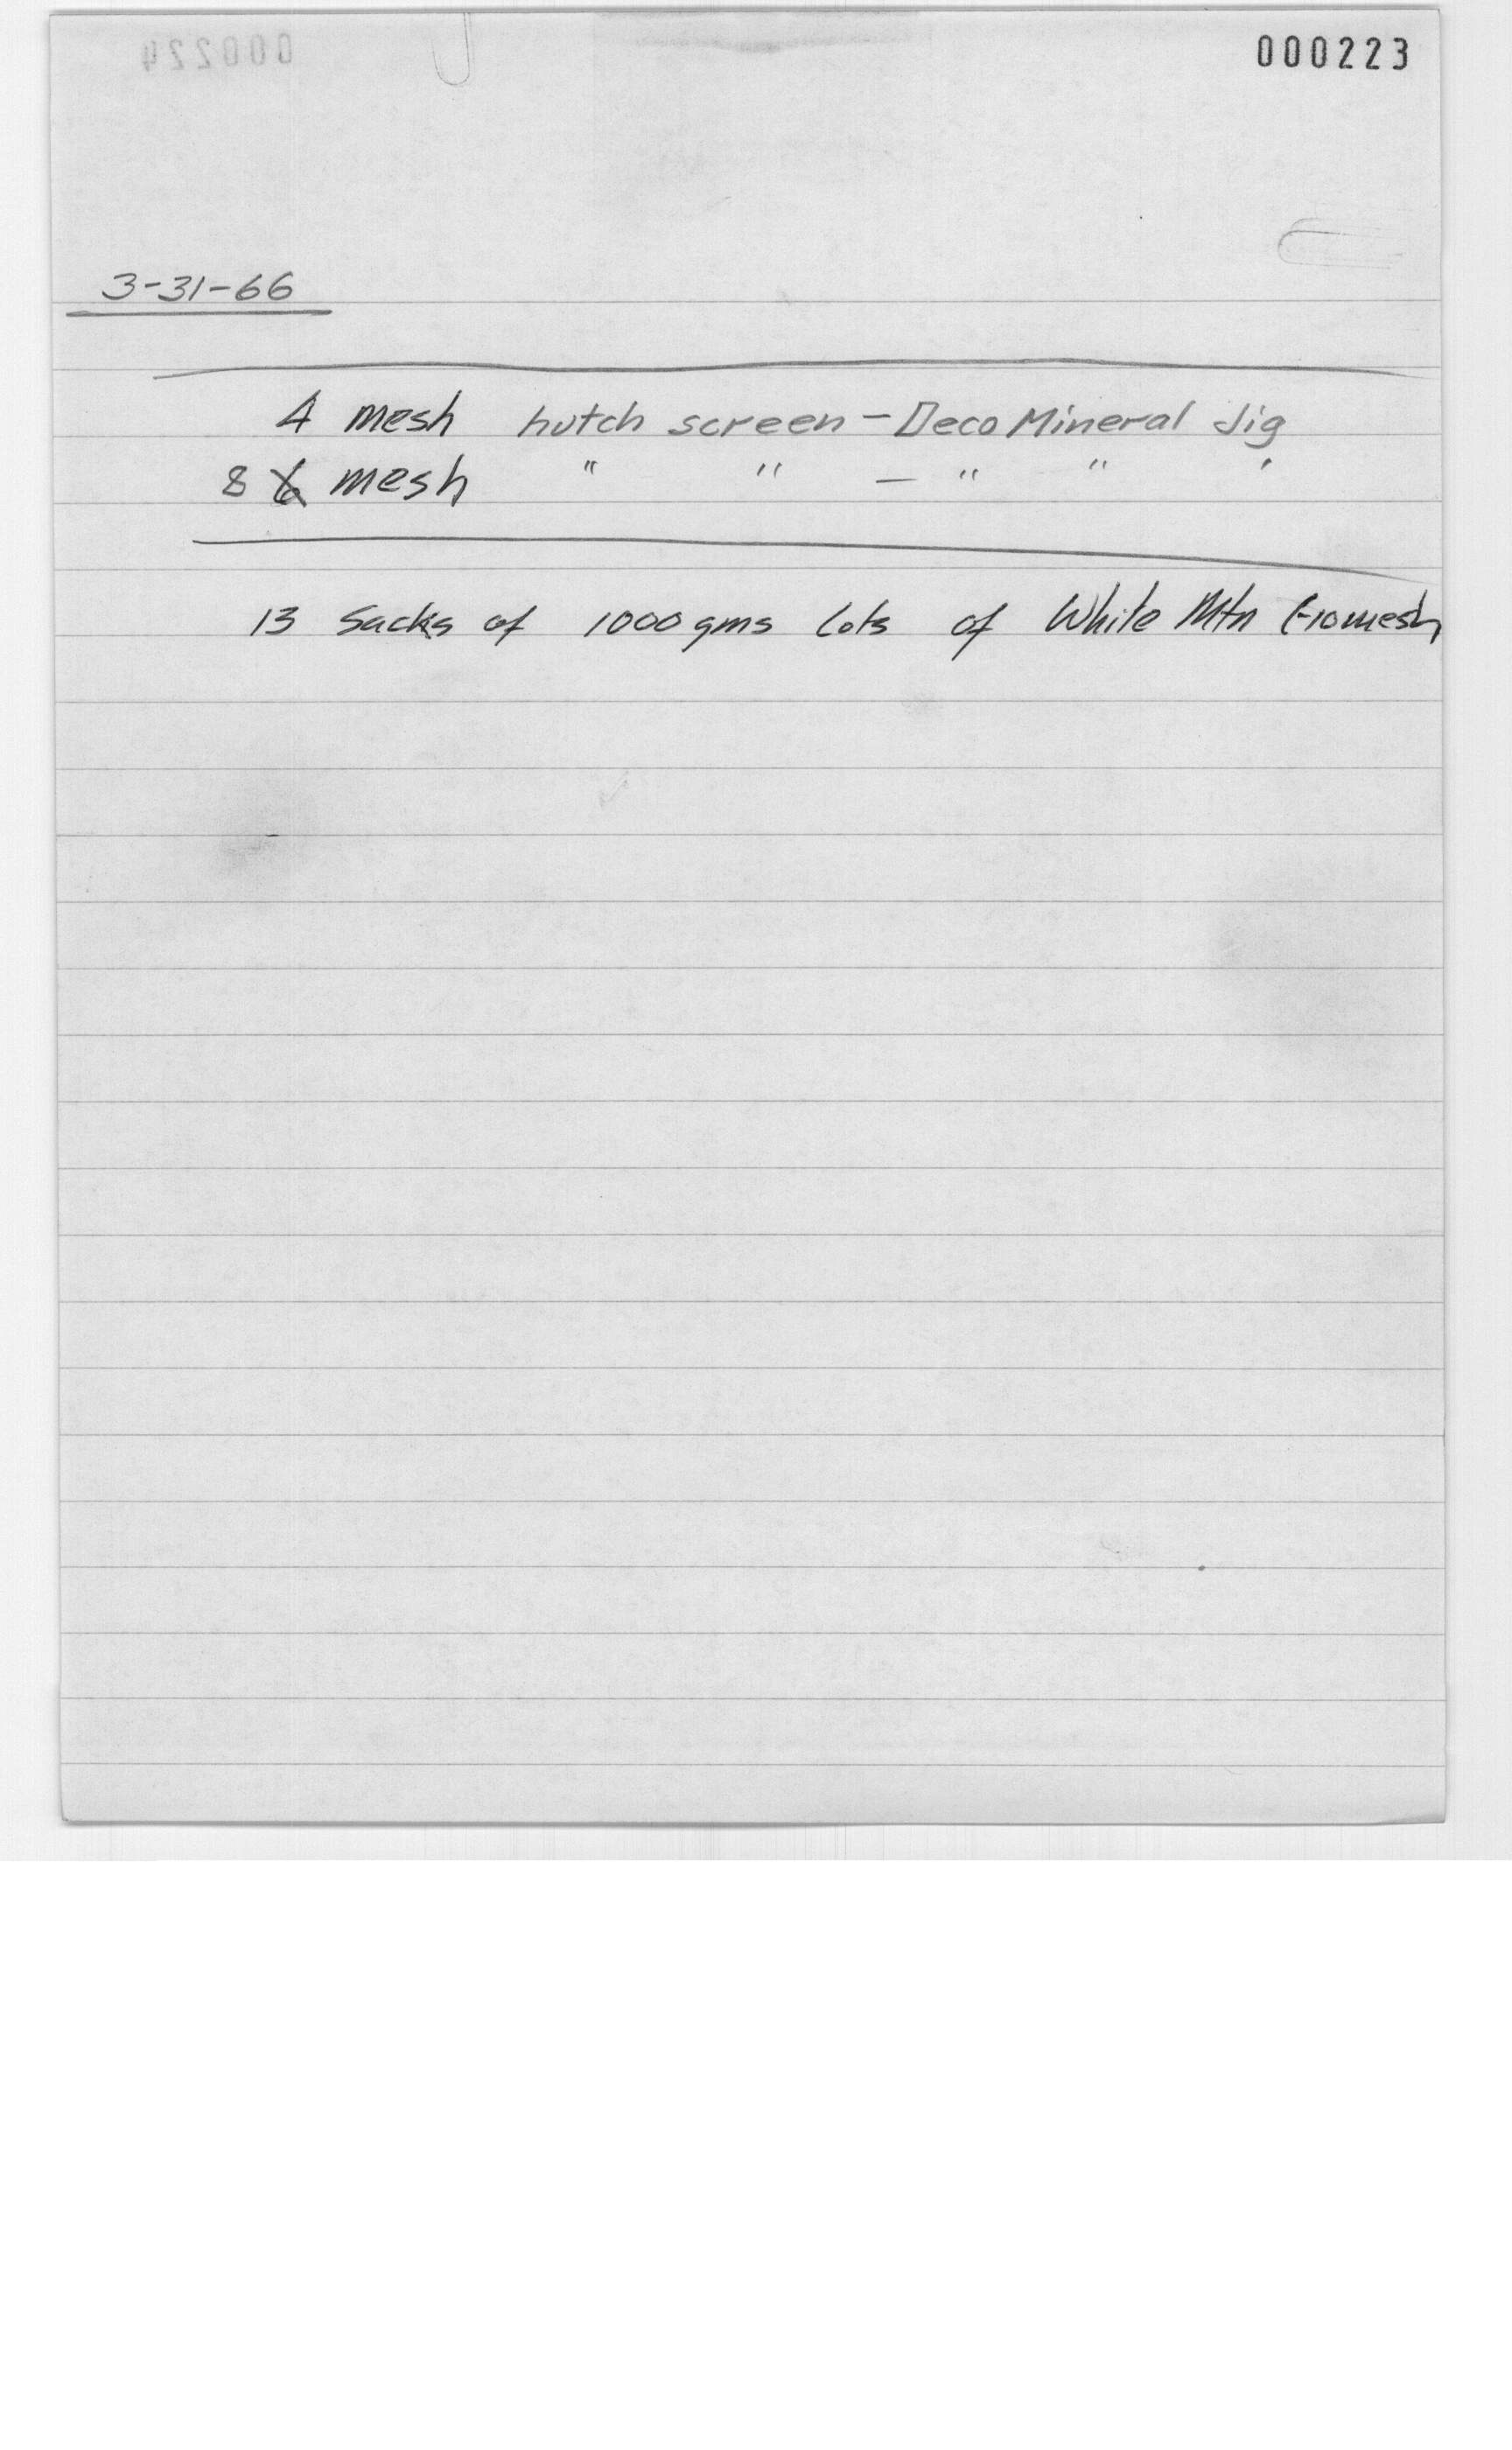 000223
3-31-66
4 mesh hutch screen - Deco Mineral Jig
8 6 mesh " " - " " '
13 Sacks of 1000 gms lots of White Mtn (-10 mesh